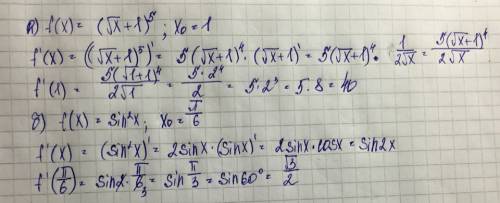 а) f(x) = (√x + 1)⁵ ; x₀ = 1
f'(x) = ((√x + 1)⁵)' = 5(√x + 1)⁴ · (√x + 1)' = 5(√x + 1)⁴ · 1/(2√x) = 5(√x + 1)⁴/(2√x)
f'(1) = 5(√1 + 1)⁴/(2√1) = 5 · 2⁴/2 = 5 · 2³ = 5 · 8 = 40
б) f(x) = sin²x ; x₀ = π/6
f'(x) = (sin²x)' = 2sinx · (sinx)' = 2sinx · cosx = sin2x
f'(π/6) = sin2 · π/6₃ = sin π/3 = sin60° = √3/2